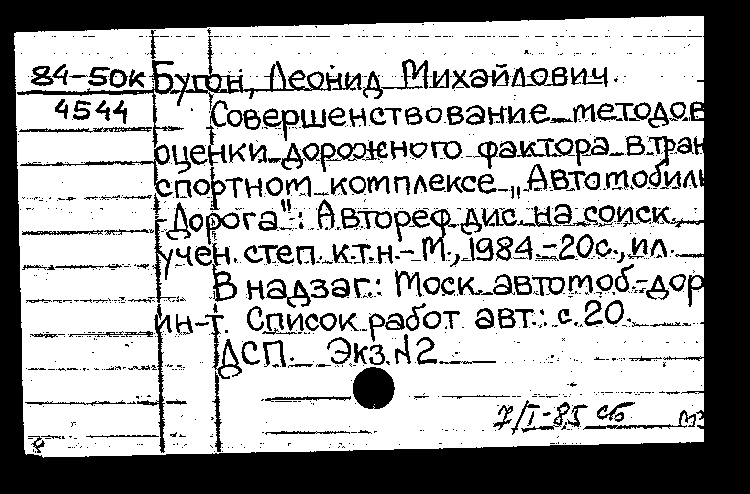 84-50к Бугон, Леонид Михайлович.
4544 Совершенствование методов
оценки дорожного фактора в тран
спортном комплексе „Автомобиль
-Дорога": Автореф.дис. на соиск.
учен. степ. к.т.н.-М., 1984.-20с., ил.
В надзаг.: Моск. автомоб.-дор
ин-т. Список работ авт.: с.20.
ДСП. Экз.N2
7/I-85 сб